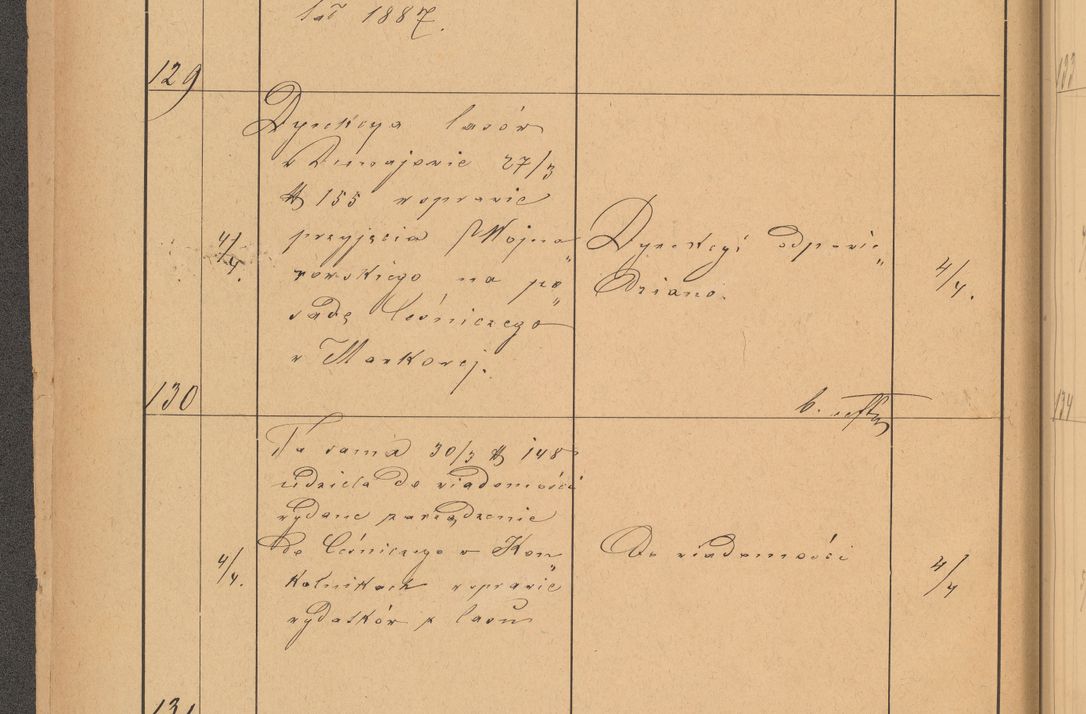 lat 1887.
129
Dyrekcya lasów
w Dunajowie 27/3
№ 155 w sprawie
przyjęcia Wojna„
rowskiego na po„
sadę leśniczego
w Markowej.
4/4.
Dyrekcyi odpowie„
dziano.
4/4.
130
b. aktu
Ta sama 30/3 № 148
udziela do wiadomości
wydane zarządzenie
do leśniczego w Kon„
kolnikach w sprawie
wydatków z lasu
4/4.
Do wiadomości
4/4
131
133
134